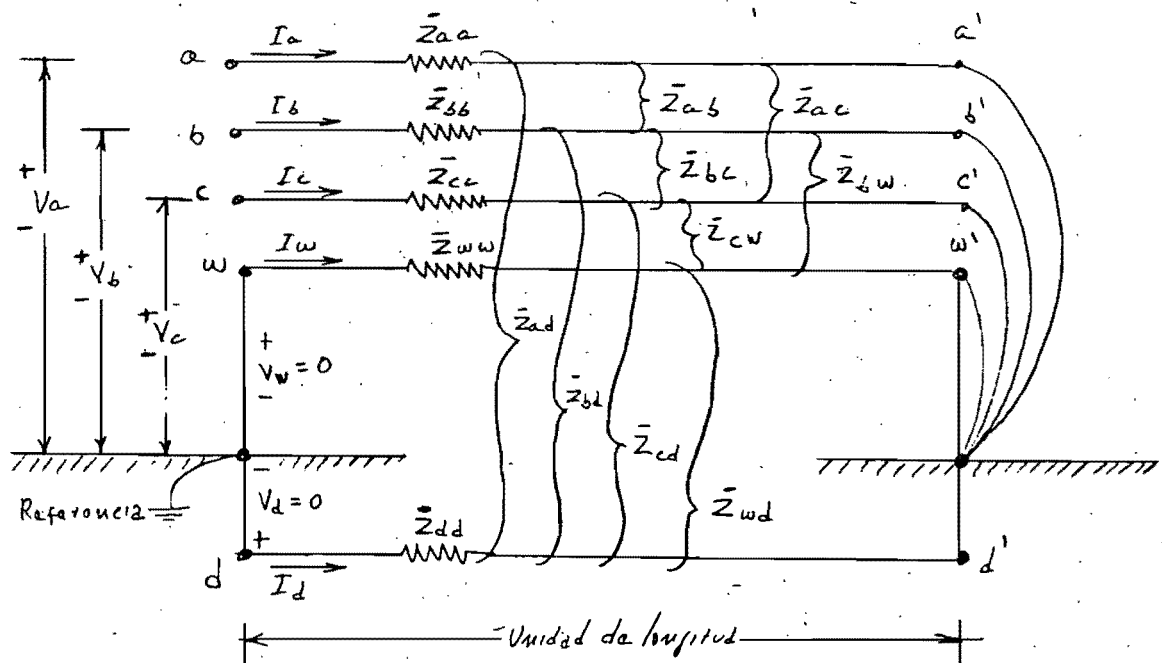 a Ia Z̄aa a'
b Ib z̄bb Z̄ab Z̄ac b'
c Ic Z̄cc Z̄bc Z̄bw c'
w Iw Z̄ww Z̄cw w'
+ Va -
+ Vb -
+ Vc -
+ Vw = 0 -
Z̄ad
Z̄bd
Z̄cd
Z̄wd
Referencia
- Vd = 0 +
Z̄dd
d Id d'
Unidad de longitud